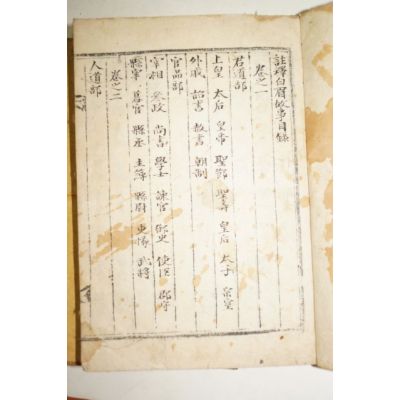 註釋白眉故事目錄
卷之一
君道部
上皇 太后 皇帝 聖節 聖壽 皇后 太子 宗室
外戚 詔書 赦書 朝制
官品部
宰相 參政 尚書 學士 諫官 御史 使臣 郡守
縣宰 幕官 縣丞 主簿 縣尉 吏椽 武將
卷之二
人道部